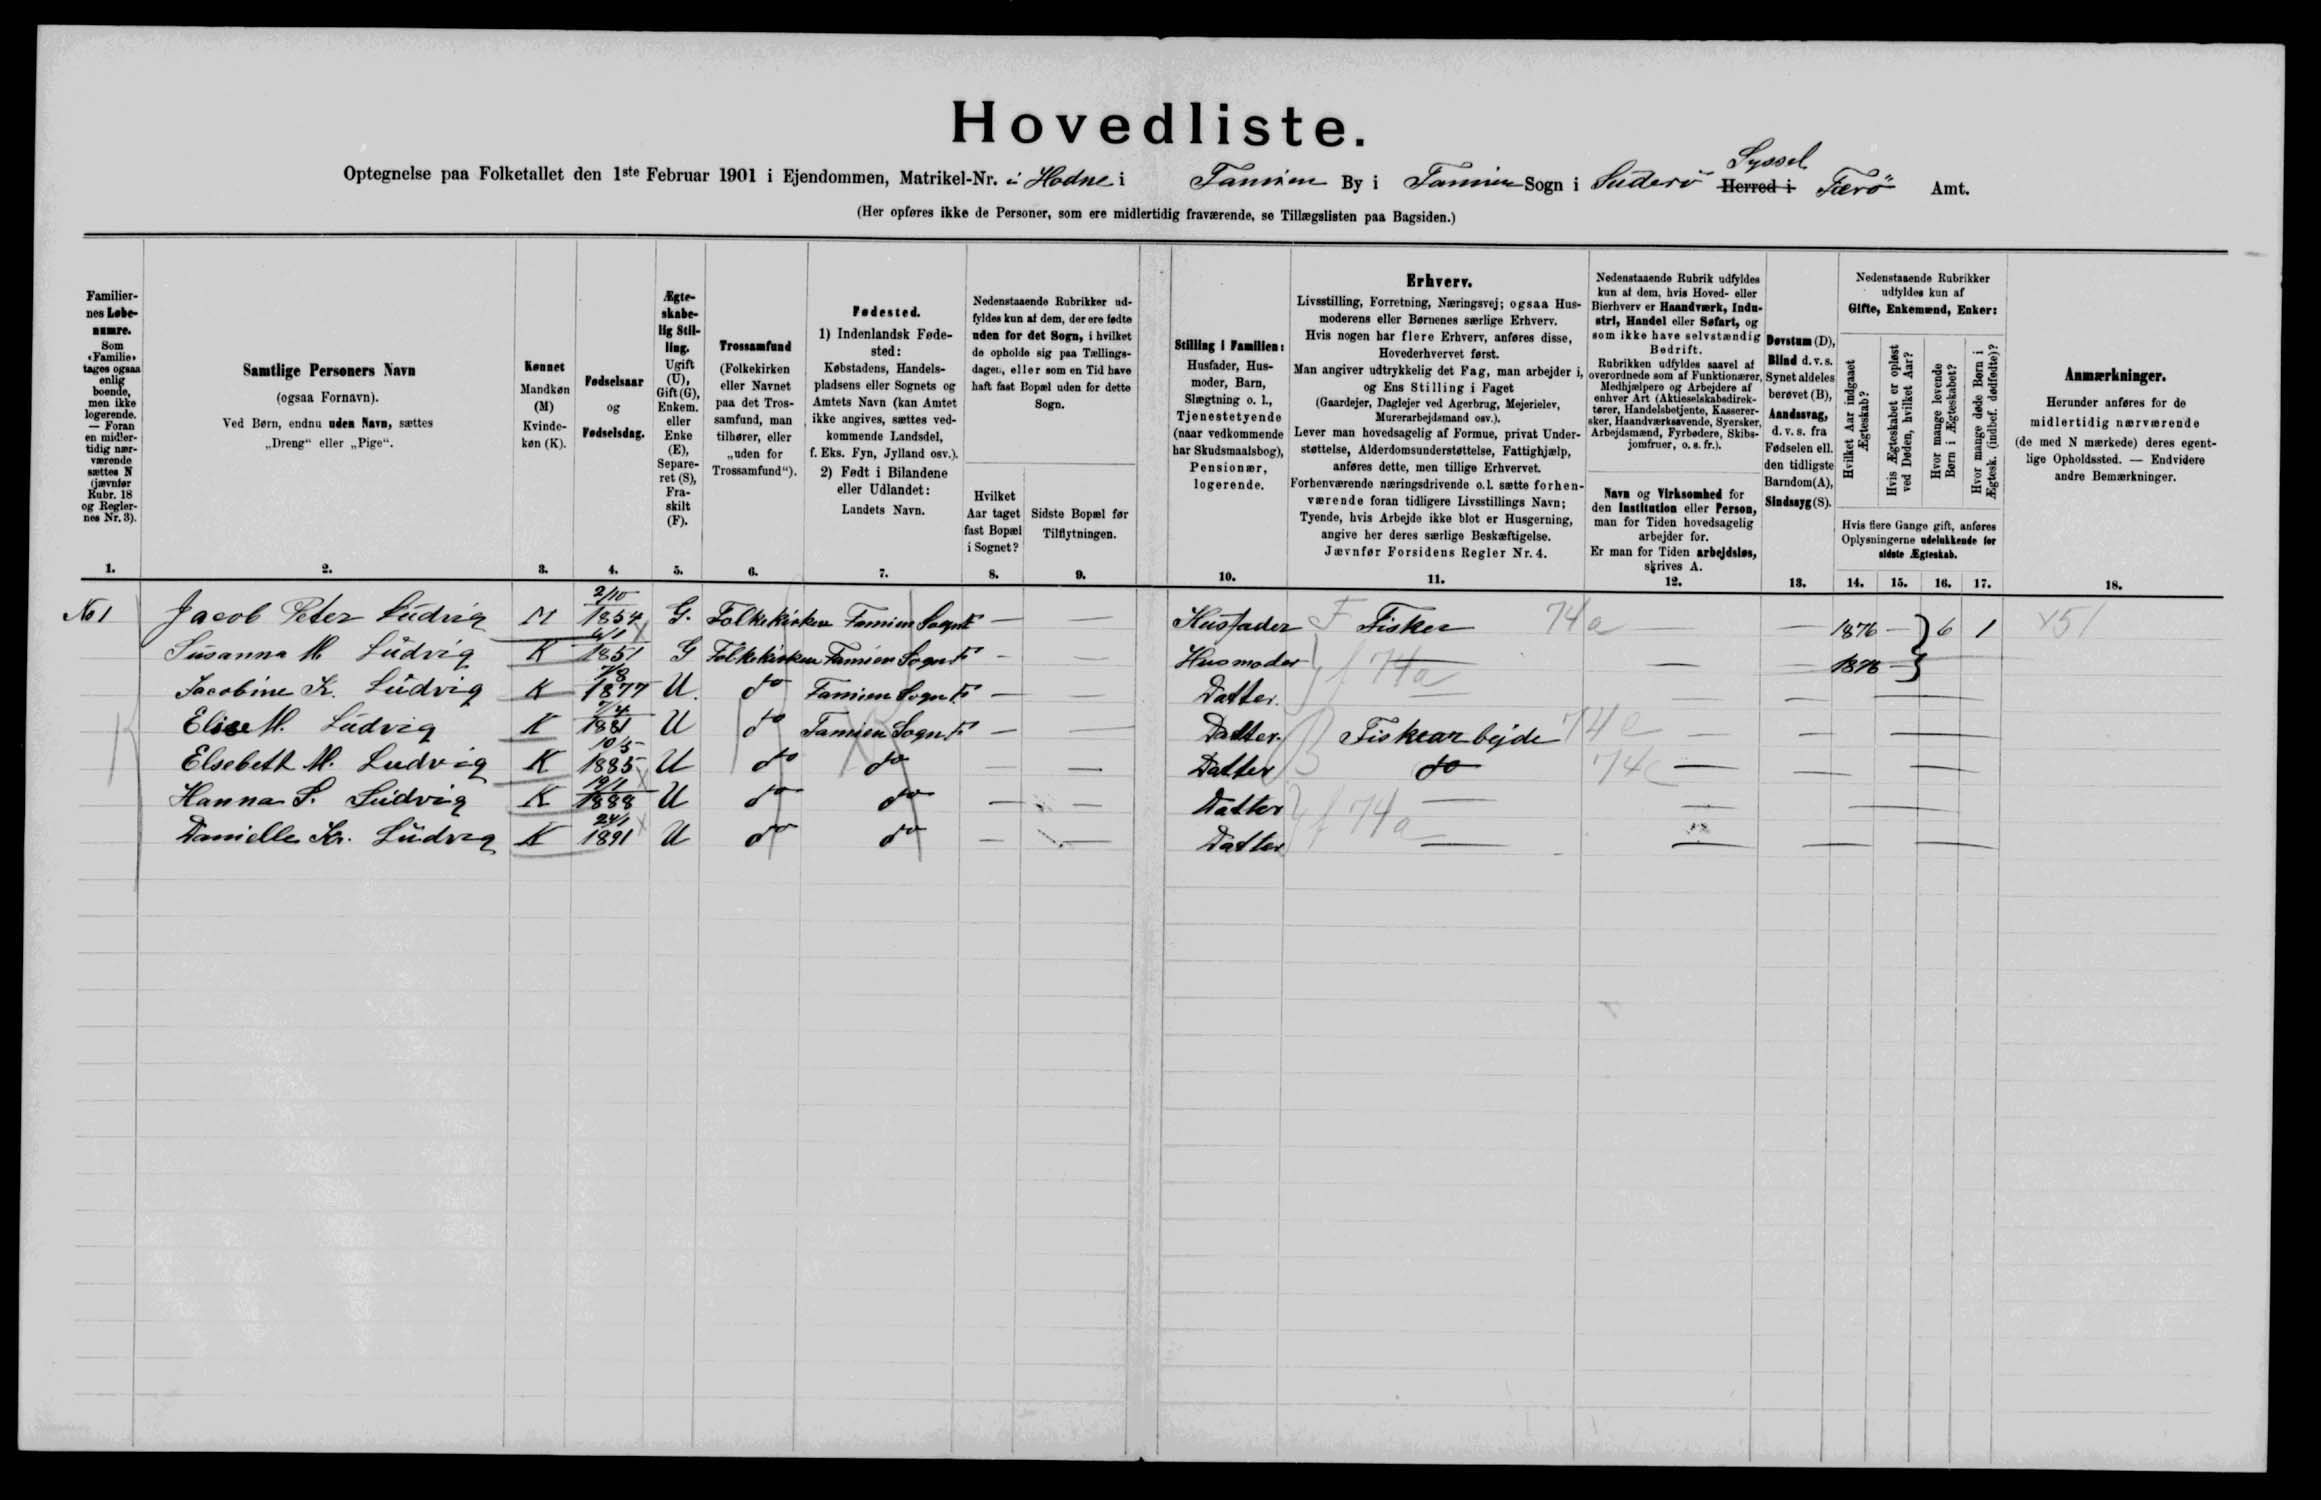 Hovedliste.
Syssel
Optegnelse paa Folketallet den 1ste Februar 1901 i Ejendommen, Matrikel-Nr. i Hodne i Famien By i Famien Sogn i Suderö Herred i Færö Amt.
(Her opføres ikke de Personer, som ere midlertidig fraværende, se Tillægslisten paa Bagsiden.)
Familier-
nes Løbe-
numre.
Som
«Familie»
tages ogsaa
enlig
boende,
men ikke
logerende.
— Foran
en midler-
tidig nær-
værende
sættes N
(jævnfør
Rubr. 18
og Regler-
nes Nr. 3).
1.
Samtlige Personers Navn
(ogsaa Fornavn).
Ved Børn, endnu uden Navn, sættes
„Dreng“ eller „Pige“.
2.
Kønnet
Mandkøn
(M)
Kvinde-
køn (K).
3.
Fødselsaar
og
Fødselsdag.
4.
Ægte-
skabe-
lig Stil-
ling.
Ugift
(U),
Gift (G),
Enkem.
eller
Enke
(E),
Separe-
ret (S),
Fra-
skilt
(F).
5.
Trossamfund
(Folkekirken
eller Navnet
paa det Tros-
samfund, man
tilhører, eller
„uden for
Trossamfund“).
6.
Fødested.
1) Indenlandsk Føde-
sted:
Købstadens, Handels-
pladsens eller Sognets og
Amtets Navn (kan Amtet
ikke angives, sættes ved-
kommende Landsdel,
f. Eks. Fyn, Jylland osv.).
2) Født i Bilandene
eller Udlandet:
Landets Navn.
7.
Nedenstaaende Rubrikker ud-
fyldes kun af dem, der ere fødte
uden for det Sogn, i hvilket
de opholde sig paa Tællings-
dagen, eller som en Tid have
haft fast Bopæl uden for dette
Sogn.
Hvilket
Aar taget
fast Bopæl
i Sognet?
8.
Sidste Bopæl før
Tilflytningen.
9.
Stilling i Familien:
Husfader, Hus-
moder, Barn,
Slægtning o. l.,
Tjenestetyende
(naar vedkommende
har Skudsmaalsbog),
Pensionær,
logerende.
10.
Erhverv.
Livsstilling, Forretning, Næringsvej; ogsaa Hus-
moderens eller Børnenes særlige Erhverv.
Hvis nogen har flere Erhverv, anføres disse,
Hovederhvervet først.
Man angiver udtrykkelig det Fag, man arbejder i,
og Ens Stilling i Faget
(Gaardejer, Daglejer ved Agerbrug, Mejerielev,
Murerarbejdsmand osv.).
Lever man hovedsagelig af Formue, privat Under-
støttelse, Alderdomsunderstøttelse, Fattighjælp,
anføres dette, men tillige Erhvervet.
Forhenværende næringsdrivende o.l. sætte forhen-
værende foran tidligere Livsstillings Navn;
Tyende, hvis Arbejde ikke blot er Husgerning,
angive her deres særlige Beskæftigelse.
Jævnfør Forsidens Regler Nr. 4.
11.
Nedenstaaende Rubrik udfyldes
kun af dem, hvis Hoved- eller
Bierhverv er Haandværk, Indu-
stri, Handel eller Søfart, og
som ikke have selvstændig
Bedrift.
Rubrikken udfyldes saavel af
overordnede som af Funktionærer,
Medhjælpere og Arbejdere af
enhver Art (Aktieselskabsdirek-
tører, Handelsbetjente, Kasserer-
sker, Haandværkssvende, Syersker,
Arbejdsmænd, Fyrbødere, Skibs-
jomfruer, o. s. fr.).
Navn og Virksomhed for
den Institution eller Person,
man for Tiden hovedsagelig
arbejder for.
Er man for Tiden arbejdsløs,
skrives A.
12.
Døvstum (D),
Blind d. v. s.
Synet aldeles
berøvet (B),
Aandssvag,
d. v. s. fra
Fødselen ell.
den tidligste
Barndom (A),
Sindssyg (S).
13.
Nedenstaaende Rubrikker
udfyldes kun af
Gifte, Enkemænd, Enker:
Hvilket Aar indgaaet
Ægteskab?
Hvis Ægteskabet er opløst
ved Døden, hvilket Aar?
Hvor mange levende
Børn i Ægteskabet?
Hvor mange døde Børn i
Ægtesk. (indbef. dødfødte)?
Hvis flere Gange gift, anføres
Oplysningerne udelukkende for
sidste Ægteskab.
14. 15. 16. 17.
Anmærkninger.
Herunder anføres for de
midlertidig nærværende
(de med N mærkede) deres egent-
lige Opholdssted. — Endvidere
andre Bemærkninger.
18.
№ 1 Jacob Peter Ludvig M 2/10 1854 G. Folkekirken Famien Sogn F — — Husfader F Fisker 74a — 1876 — 6 1 51
Susanna M Ludvig K 1851 G Folkekirken Famien Sogn F — — Husmoder f 74a — — 1876 —
Jacobine K. Ludvig K 7/8 1877 U. do Famien Sogn F — — Datter. — —
Elise M. Ludvig K 7/4 1881 U do Famien Sogn F — — Datter. B Fiskearbejde 74c — — —
Elsebeth M. Ludvig K 10/5 1885 U do do — — Datter do 74c — — —
Hanna S. Ludvig K 19/1 1888 U do do — — Datter f 74a — — — —
Danielle Kr. Ludvig K 24/1 1891 U do do — — Datter — — — —